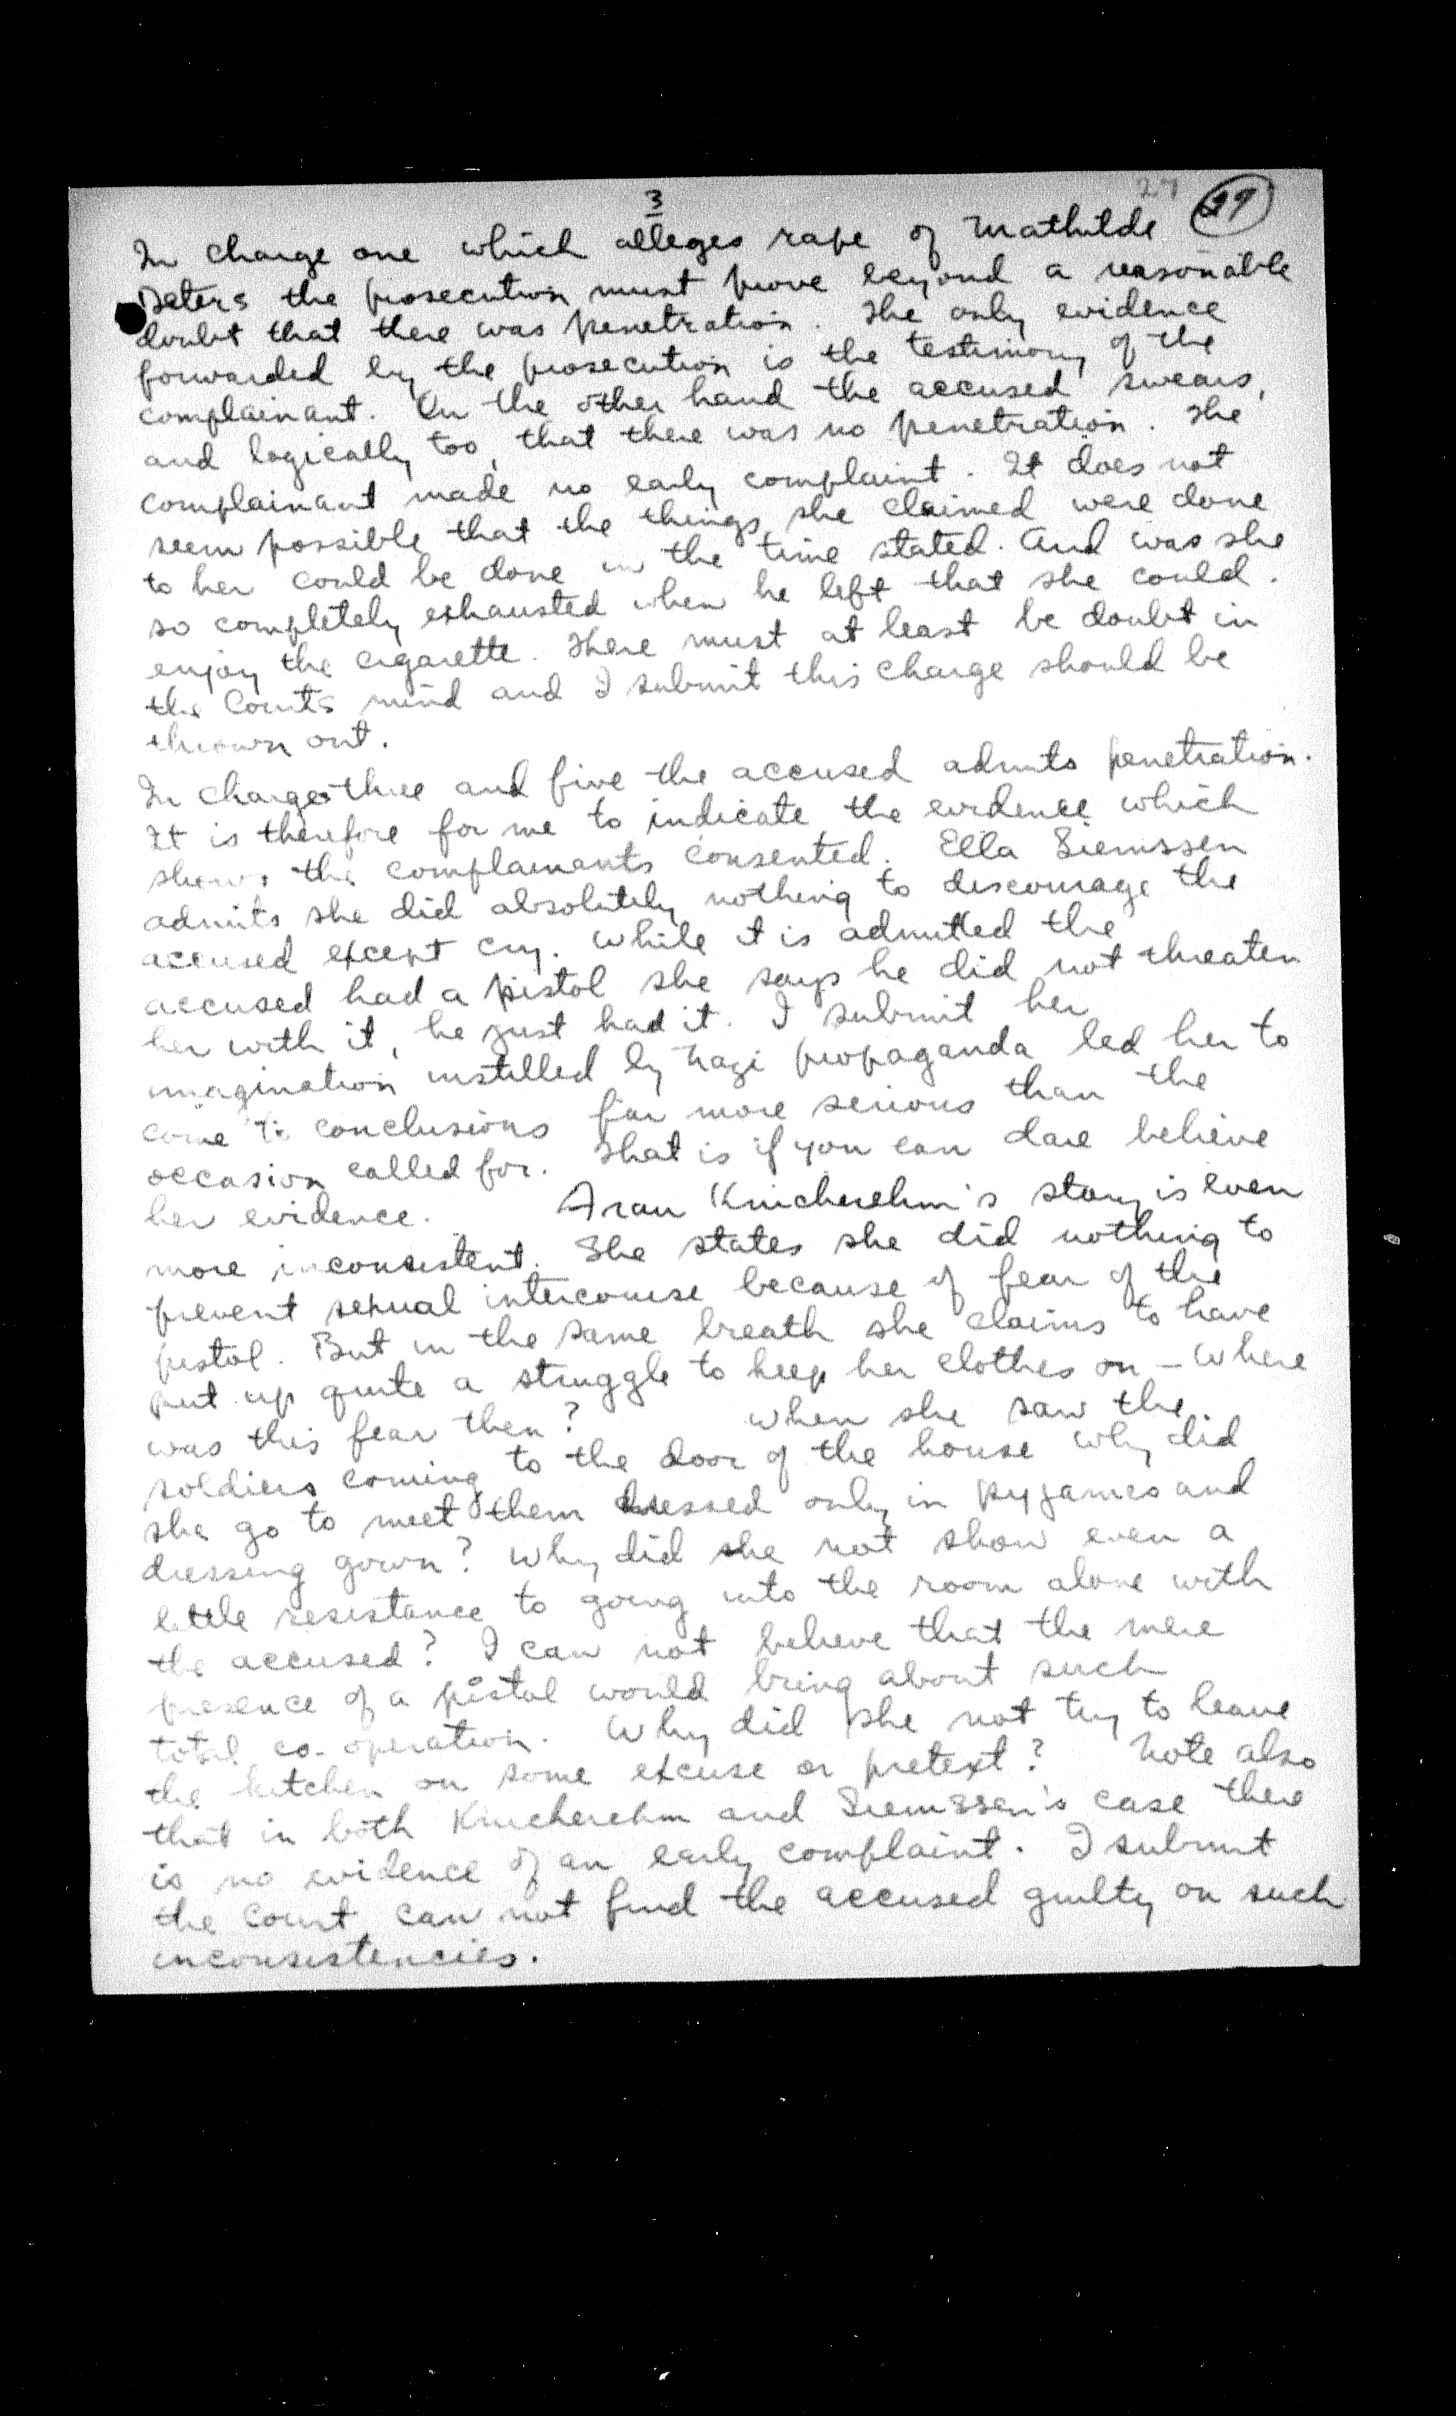 3
27
27
In charge one which alleges rape of Mathilde
Peters the prosecution must prove beyond a reasonable
doubt that there was penetration. The only evidence
forwarded by the prosecution is the testimony of the
complainant. On the other hand the accused swears,
and logically too, that there was no penetration. The
complainant made no early complaint. It does not
seem possible that the things she claimed were done
to her could be done in the time stated. And was she
so completely exhausted when he left that she could.
enjoy the cigarette. There must at least be doubt in
the Courts mind and I submit this charge should be
thrown out.
In charges three and five the accused admits penetration.
It is therefore for me to indicate the evidence which
shows the complainants consented. Ella Siemssen
admits she did absolutely nothing to discourage the
accused except cry. While it is admitted the
accused had a pistol she says he did not threaten
her with it, he just had it. I submit her
imagination instilled by Nazi propaganda led her to
come to conclusions far more serious than the
occasion called for. That is if you can dare believe
her evidence. Frau Knicherehm's story is even
more inconsistent. She states she did nothing to
prevent sexual intercourse because of fear of the
pistol. But in the same breath she claims to have
put up quite a struggle to keep her clothes on - Where
was this fear then? When she saw the
soldiers coming to the door of the house why did
she go to meet them dressed only in pyjamas and
dressing gown? Why did she not show even a
little resistance to going into the room alone with
the accused? I can not believe that the mere
presence of a pistol would bring about such
total co-operation. Why did she not try to leave
the kitchen on some excuse or pretext? Note also
that in both Knicherehm and Siemssen's case there
is no evidence of an early complaint. I submit
the court can not find the accused guilty on such
inconsistencies.